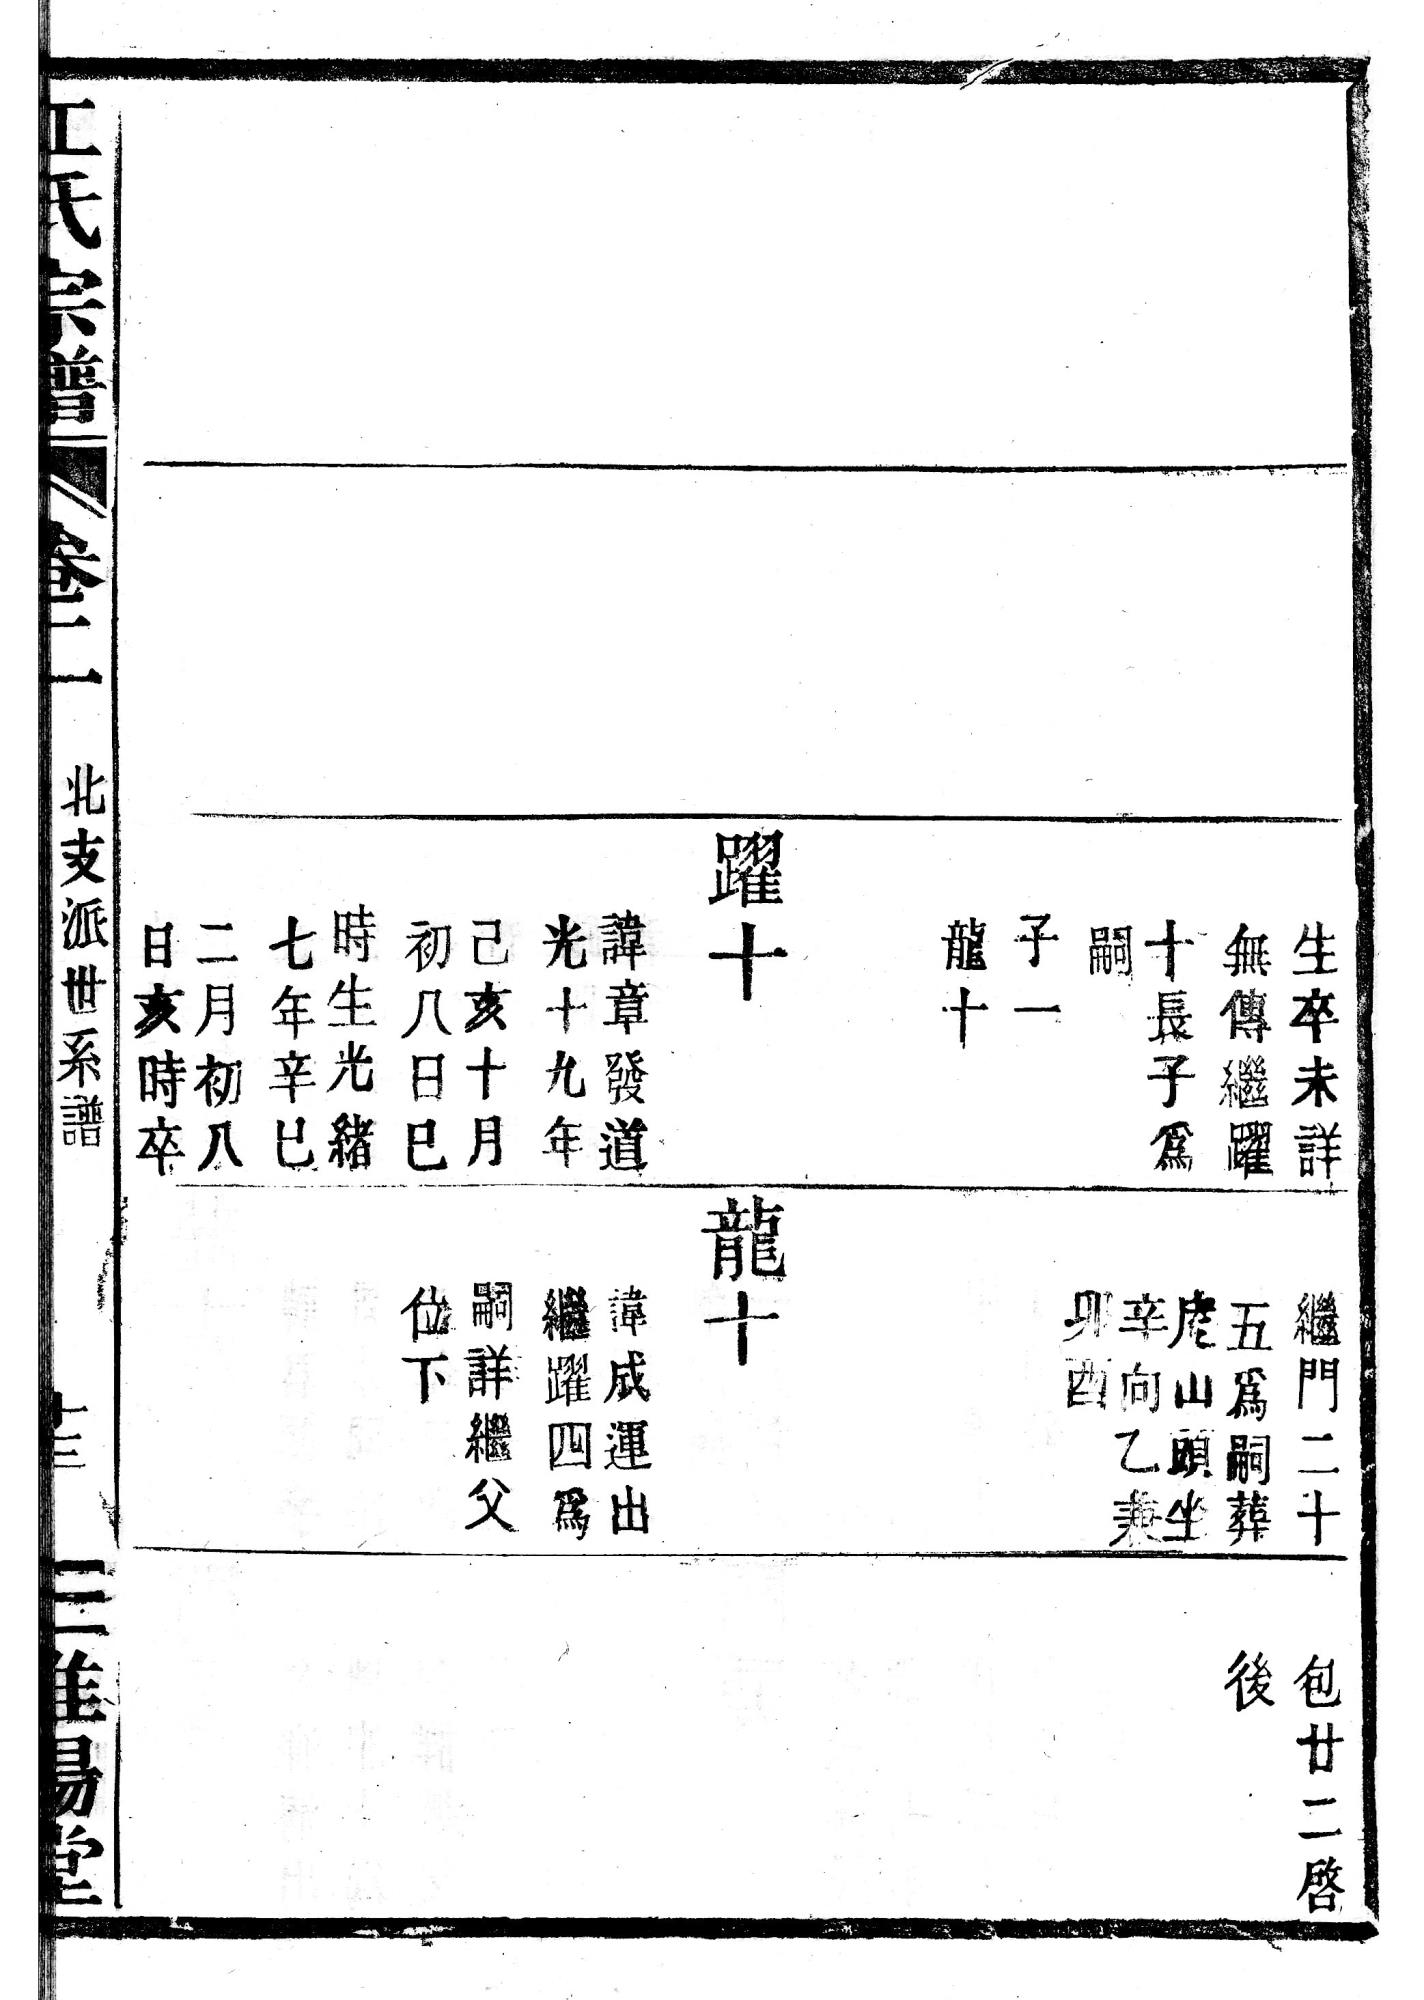 生卒未詳
無傳繼躍
十長子爲
嗣
子一
龍十
躍十
諱章發道
光十九年
己亥十月
初八日巳
時生光緒
七年辛巳
二月初八
日亥時卒
繼門二十
五爲嗣葬
虎山頭坐
辛向乙兼
卯酉
龍十
諱成運出
繼躍四爲
嗣詳繼父
位下
包廿二啓
後
江氏宗譜
卷二
北支派世系譜
十三
三惟堂